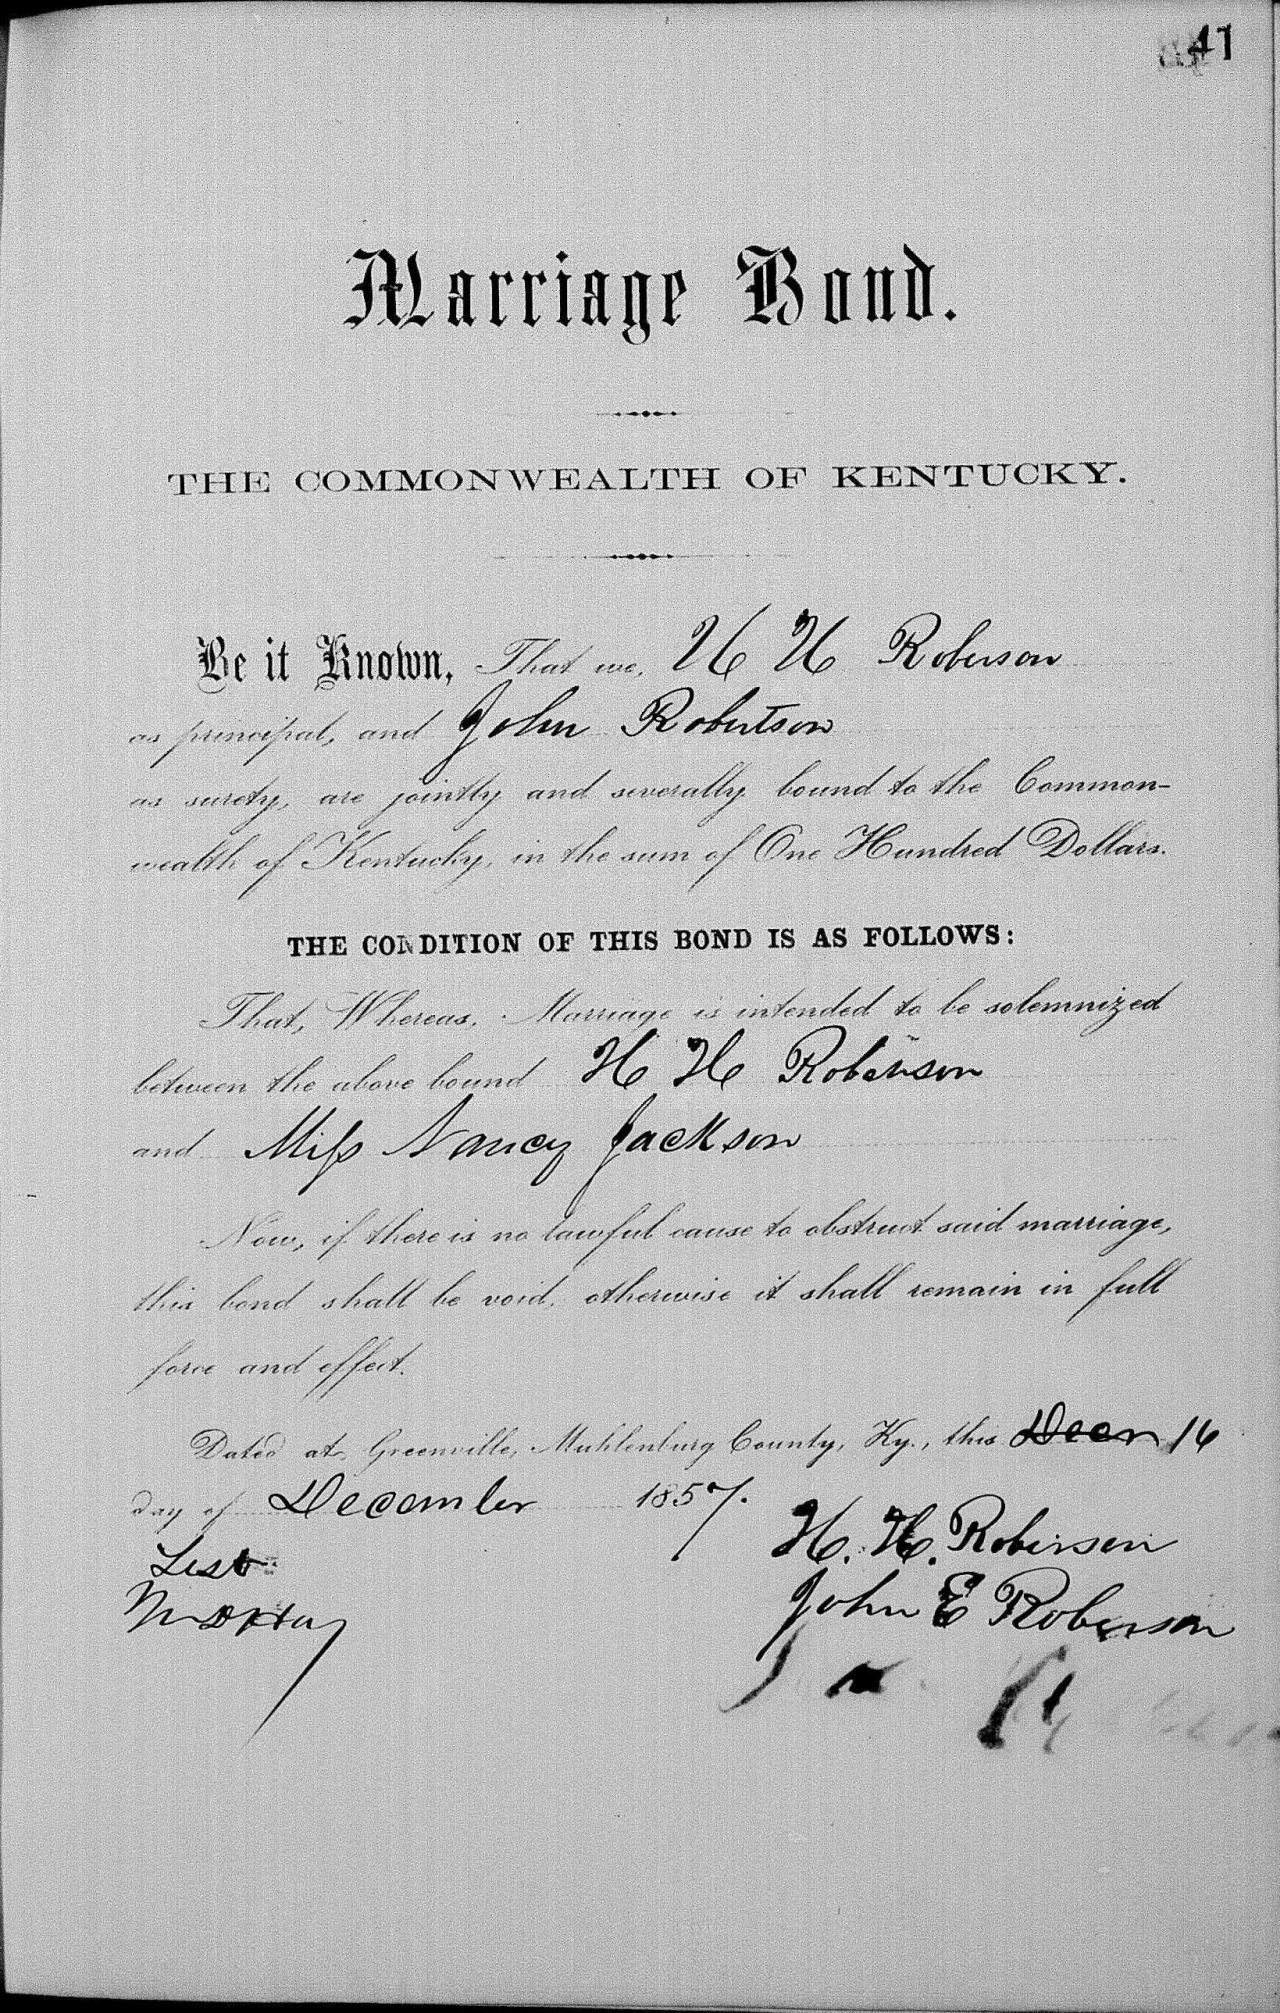 41
Marriage Bond.
THE COMMONWEALTH OF KENTUCKY.
Be it Known, That we, H H Roberson
as principal, and John Robertson
as surety, are jointly and severally bound to the Common-
wealth of Kentucky, in the sum of One Hundred Dollars.
THE CONDITION OF THIS BOND IS AS FOLLOWS:
That, Whereas, Marriage is intended to be solemnized
between the above bound H H Roberson
and Miss Nancy Jackson
Now, if there is no lawful cause to obstruct said marriage,
this bond shall be void, otherwise it shall remain in full
force and effect.
Dated at Greenville, Muhlenburg County, Ky., this Decr 16
day of December 1857.
Test
H. H. Roberson
John E Roberson